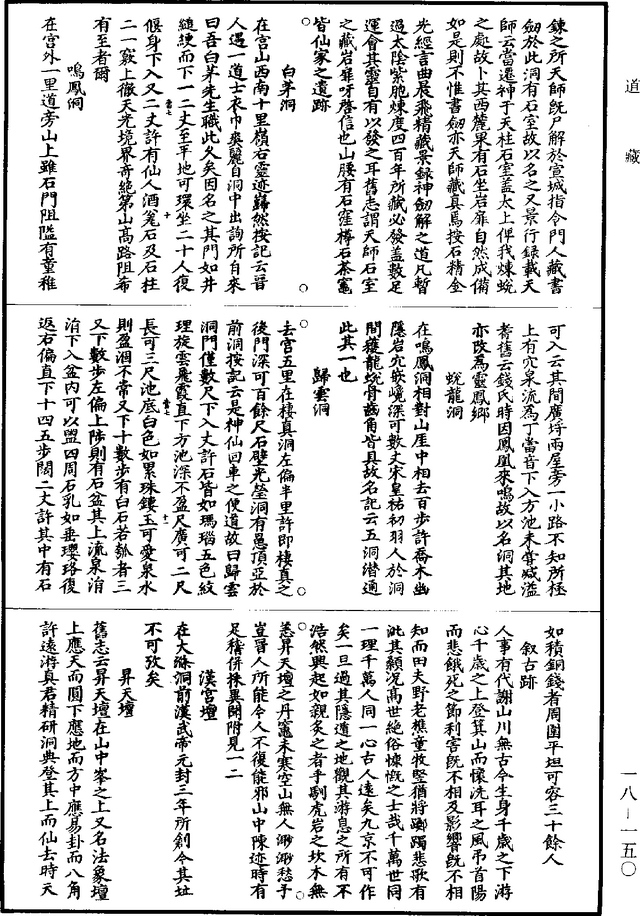 道藏
鍊之所天師旣尸解於宣城指令門人藏書
劒於此洞有石室故以名之又景行録載天
師云當遷神于天柱石室蓋太上俾我煉蛻
之處故卜其西麓果有石坐岩扉自然成備
如是則不惟書劒亦天師藏真焉按石精金
光經言曲晨飛精藏景録神劒解之道凡暫
過太陰紫胞煉度四百年所藏必發蓋數足
運會其靈自有以發之耳舊志謂天師石室
之藏岩扉呀啓信也山腰有石窪樽石茶竈
皆仙家之遺跡
白茅洞
在宫山西南十里嶺右靈迹巋然按記云晉
人遇一道士衣巾爽麗自洞中出詢所自來
曰吾白茅先生職此久矣因名之其門如井
縋綆而下一二丈至平地可環坐二十人復
偃身下入又二丈許有仙人酒瓮石及石柱
二一竅上徹天光境界奇絶第山高路阻希
有至者爾
鳴鳳洞
在宫外一里道旁山上雖石門阻隘有童稚
可入云其間廣埒兩屋旁一小路不知所極
上有穴泉流為丁當音下入方池未嘗減溢
耆舊云錢氏時因鳳凰來鳴故以名洞其地
亦改為靈鳳鄉
蛻龍洞
在鳴鳳洞相對山崖中相去百步許喬木幽
隱岩穴嵌巉深可數丈宋皇祐初羽人於洞
間獲龍蛻骨齒角皆具故名記云五洞潛通
此其一也
歸雲洞
去宫五里在棲真洞左偏半里許即棲真之
後門深可百餘尺石壁光瑩洞有頂亞於
前洞按記云是神仙回車之便道故曰歸雲
洞門僅數尺下入丈許石皆如瑪瑙五色紋
理旋雲飛霞直下方池深不盈尺廣可二尺
長可三尺池底白色如累珠鏤玉可愛泉水
則盈涸不常又下十數步有白石若瓠者三
又下數步左偏上陟則有石盆其上流泉涓
涓下入盆内可以盥四周石乳如垂瓔珞復
返右偏直下十四五步闊二丈許其中有石
如積銅錢者周圍平坦可容三十餘人
叙古跡
人事有代謝山川無古今生身千歲之下游
心千歲之上登箕山而懷洗耳之風弔首陽
而悲餓死之節利害旣不相及影響旣不相
知而田夫野老樵童牧豎猶將躑躅悲歌有
泚其顙況高世絶俗慷慨之士哉千萬世同
一理千萬人同一心古人遠矣九京不可作
矣一旦過其隱遁之地觀其游息之所有不
浩然興起如親炙之者乎馴虎岩之坎木無
恙昇天壇之丹竈未寒空山無人渺渺愁予
豈晉人所能令人不復能邪山中陳迹時有
足稽併採異聞附見一二
漢宫壇
在大滌洞前漢武帝元封三年所創今其址
不可攷矣
昇天壇
舊志云昇天壇在山中峯之上又名法象壇
上應天而圓下應地而方中應易卦而八角
許遠游真君精研洞典登其上而仙去時天
一八—一五〇